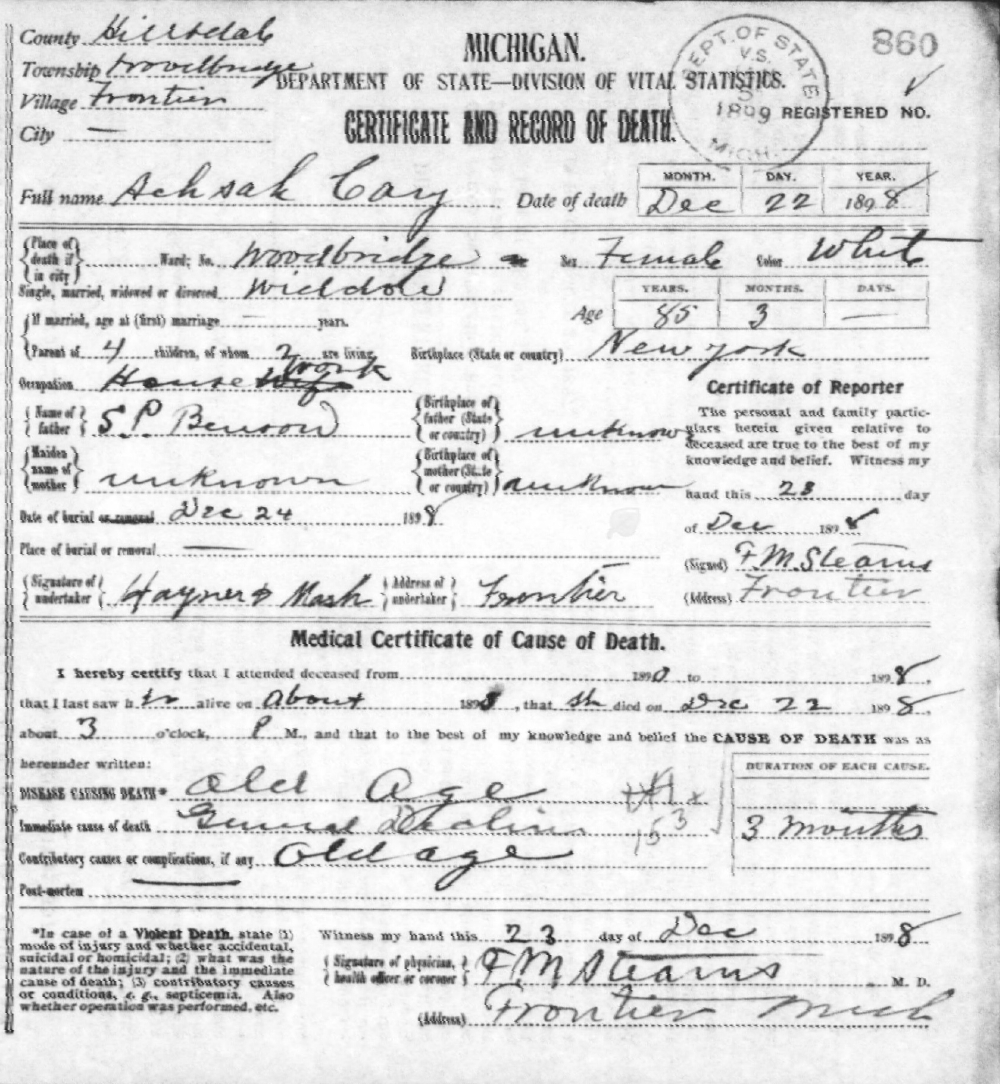 County Hillsdale
MICHIGAN.
860
Township Woodbridge
DEPARTMENT OF STATE—DIVISION OF VITAL STATISTICS.
Village Frontier
DEPT. OF STATE V.S. 1899 MICH.
REGISTERED NO.
City —
CERTIFICATE AND RECORD OF DEATH.
Full name Achsah Cary Date of death
MONTH. DAY. YEAR.
Dec 22 1898
Place of death if in city Ward; No. Woodbridge Sex Female Color White
Single, married, widowed or divorced Widdow
YEARS. MONTHS. DAYS.
Age 85 3 —
If married, age at (first) marriage — years.
Parent of 4 children, of whom 2 are living Birthplace (State or country) New York
Occupation House Work
Name of father S.P. Benson Birthplace of father (State or country) unknown
Maiden name of mother unknown Birthplace of mother (State or country) unknown
Date of burial or removal Dec 24 1898
Place of burial or removal —
Signature of undertaker Hayner & Mash Address of undertaker Frontier
Certificate of Reporter
The personal and family partic-
ulars herein given relative to
deceased are true to the best of my
knowledge and belief. Witness my
hand this 23 day
of Dec 1898
(Signed) F.M. Stearns
(Address) Frontier
Medical Certificate of Cause of Death.
I hereby certify that I attended deceased from 1890 to 1898,
that I last saw h er alive on About 1898, that sh died on Dec 22 1898,
about 3 o'clock, P M., and that to the best of my knowledge and belief the CAUSE OF DEATH was as
hereunder written:
DURATION OF EACH CAUSE.
DISEASE CAUSING DEATH* Old Age
Immediate cause of death General Decline 153 3 months
Contributory causes or complications, if any Old age
Post-mortem —
*In case of a Violent Death, state (1)
mode of injury and whether accidental,
suicidal or homicidal; (2) what was the
nature of the injury and the immediate
cause of death; (3) contributory causes
or conditions, e. g., septicemia. Also
whether operation was performed, etc.
Witness my hand this 23 day of Dec 1898
Signature of physician, health officer or coroner F M Stearns M. D.
(Address) Frontier Mich